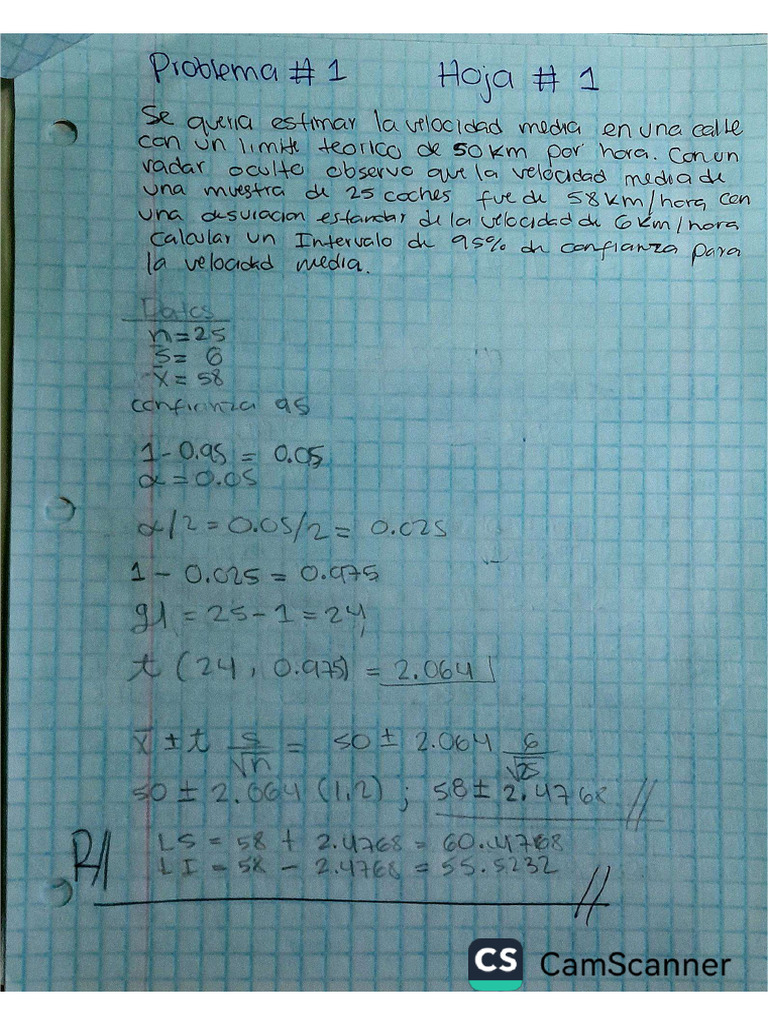 Problema # 1 Hoja # 1
Se queria estimar la velocidad media en una calle
con un limite teorico de 50 km por hora. Con un
radar oculto observo que la velocidad media de
una muestra de 25 coches fue de 58 km/hora con
una desviacion estandar de la velocidad de 6 km/hora
Calcular un Intervalo de 95% de confianza para
la velocidad media.
Datos
n=25
S= 6
x̄= 58
confianza 95
1-0.95 = 0.05
α=0.05
α/2=0.05/2= 0.025
1- 0.025=0.975
gl = 25-1=24
t (24, 0.975) = 2.064
x̄ ± t S/√n = 50 ± 2.064 6/√25
50 ± 2.064 (1.2) ; 58 ± 2.4768 //
R// LS = 58 + 2.4768 = 60.4768
LI = 58 - 2.4768 = 55.5232 //
CS CamScanner